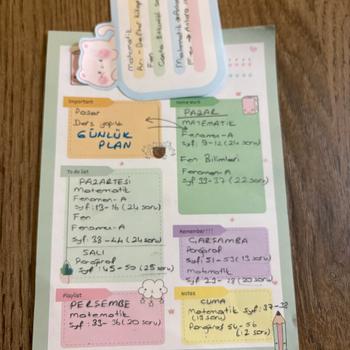 Matematik
Arı - Defter kitap
Fen
Matematik
Fen →
Important
Pazar
Ders
GÜNLÜK
PLAN
Home work
PAZAR
MATEMATİK
Fenomen-A
Syf: 9-12 (24 soru)
Fen Bilimleri
Fenomen-A
Syf: 33-37 (22 soru)
To do list
PAZARTESİ
Matematik
Fenomen-A
Syf: 13-16 (24 soru)
Fen
Fenomen-A
Syf: 38-44 (24 soru)
SALI
Paragraf
Syf: 45-50 (25 soru)
Remember!!!
ÇARŞAMBA
Paragraf
Syf: 51-53 (13 soru)
Matematik
Syf: 29-32 (20 soru)
Playlist
PERŞEMBE
Matematik
Syf: 33-36 (20 soru)
Notes
CUMA
Matematik Syf: 37-38
Paragraf 54-56
(12 soru)